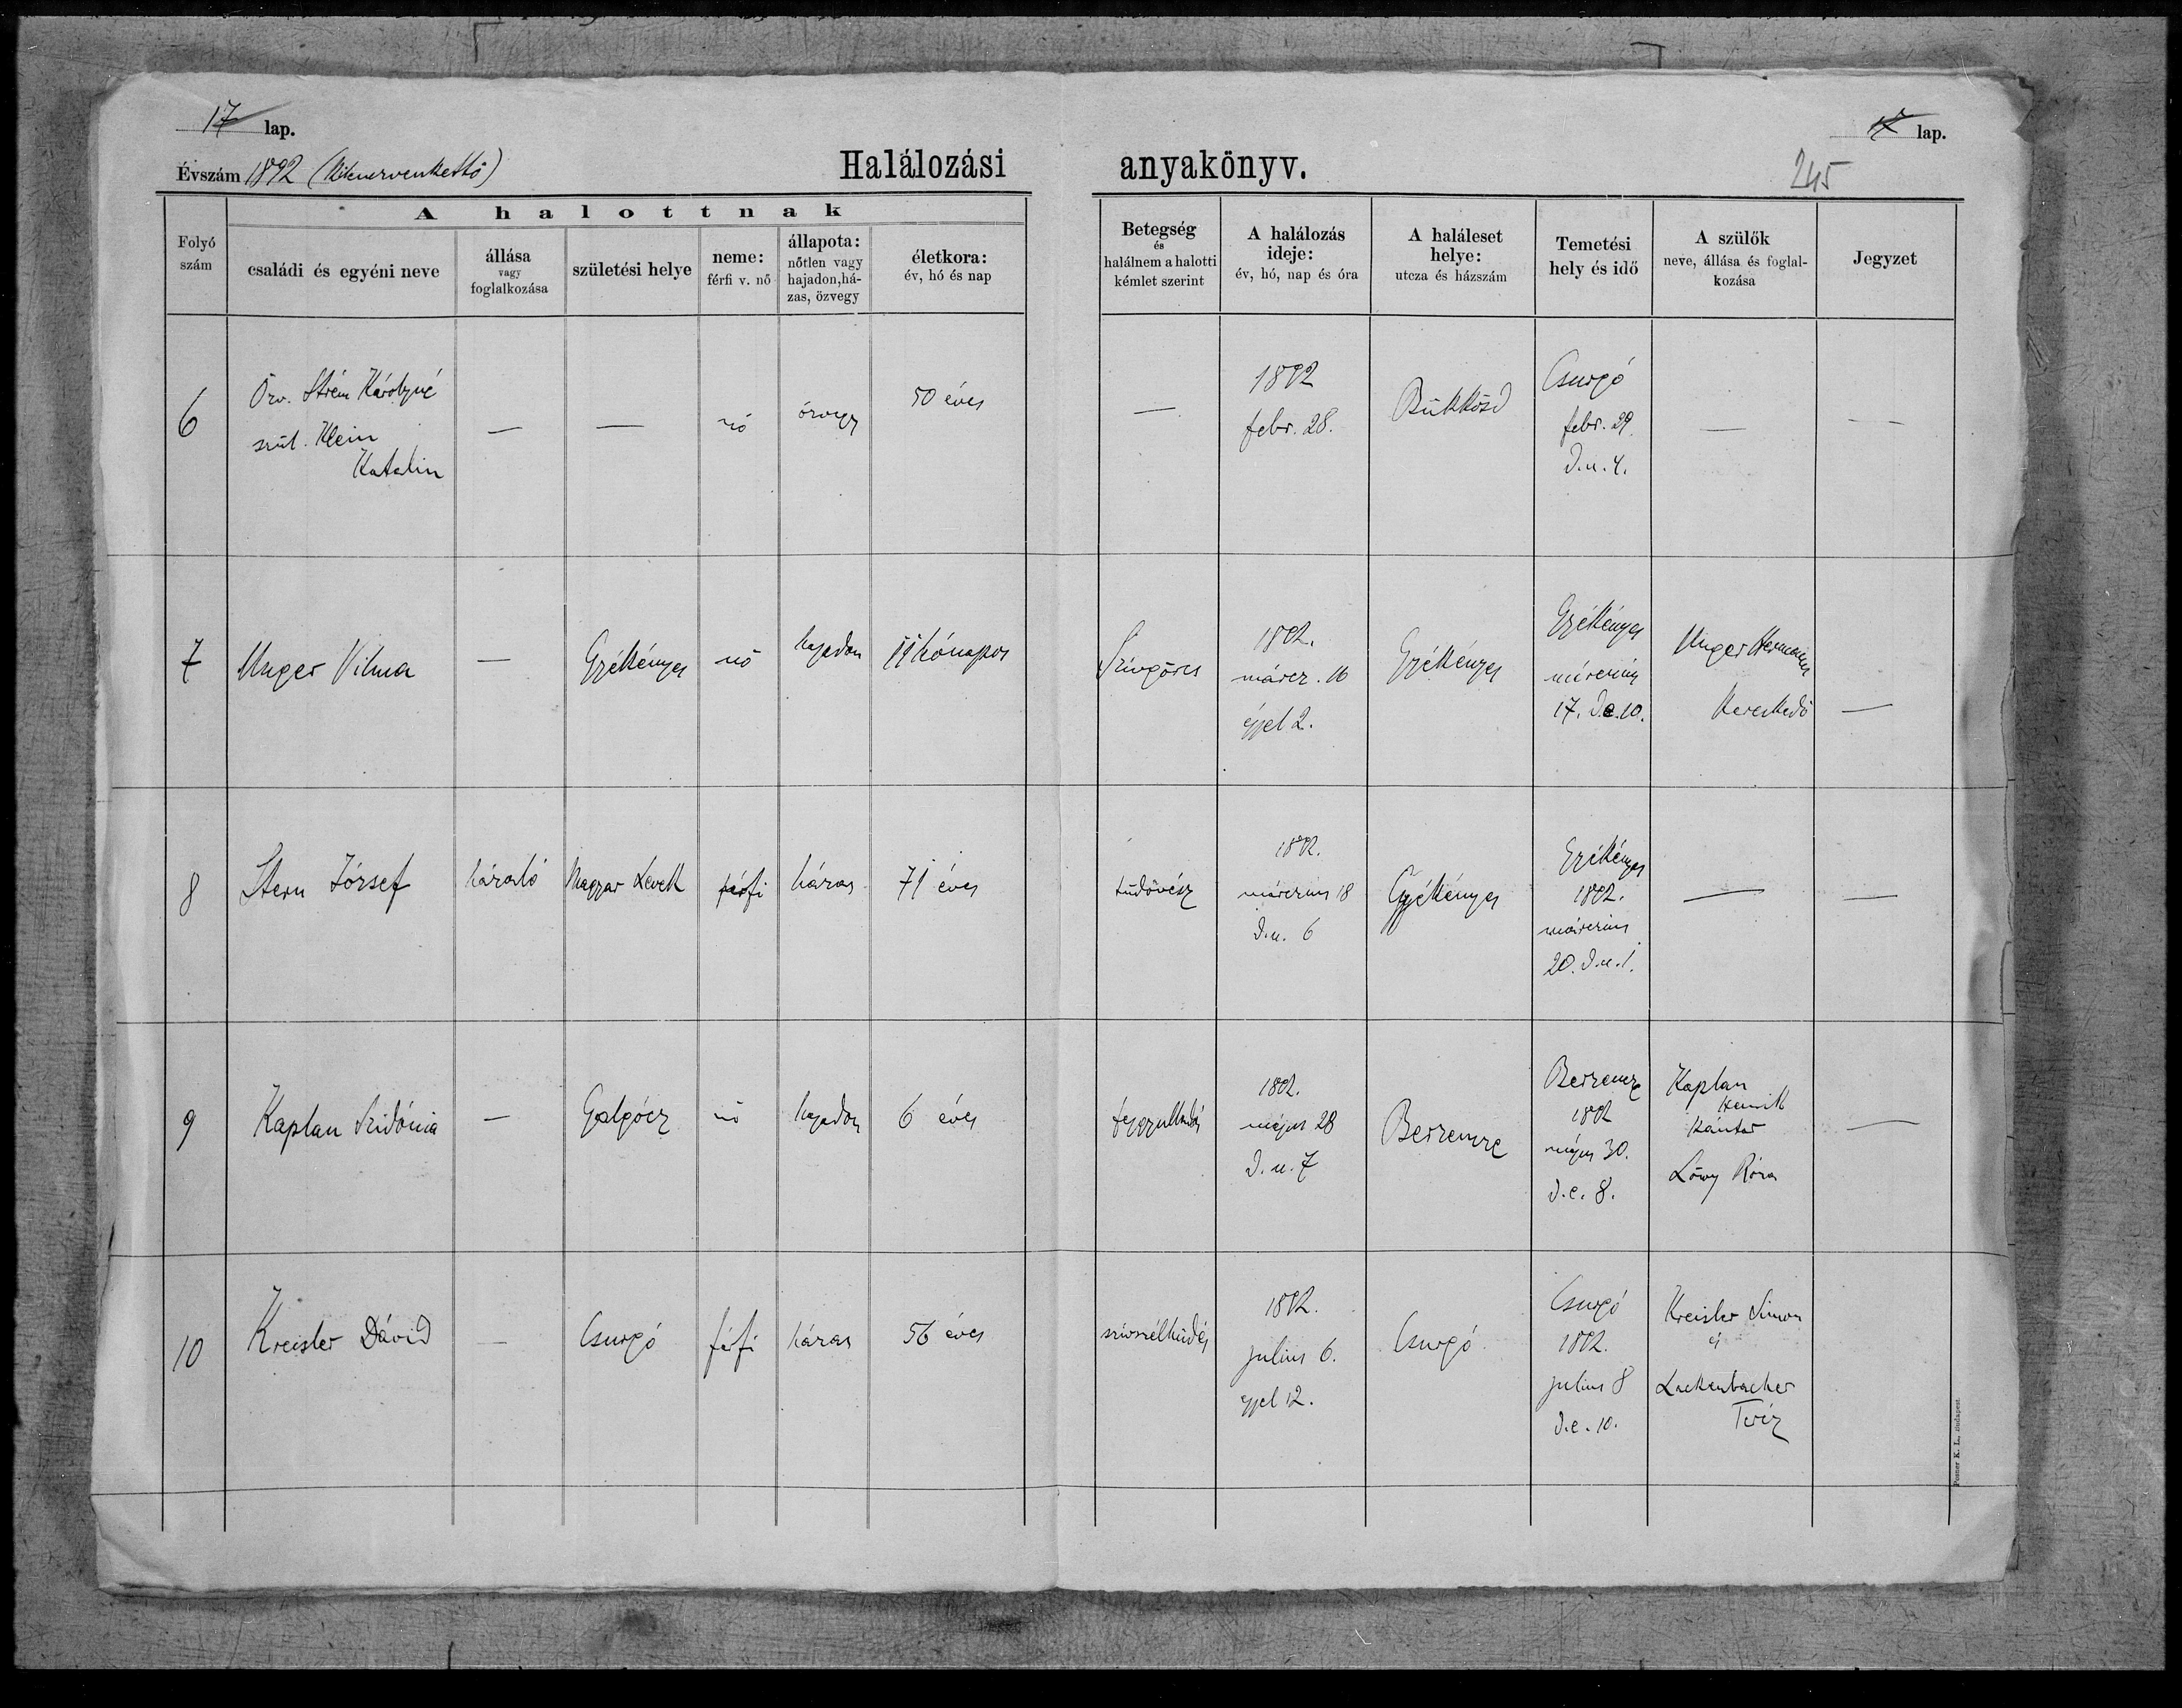 17 lap.
17 lap.
Évszám 1892 (Kilenczvenkettő)
Halálozási anyakönyv.
245
A halottnak
Folyó szám
családi és egyéni neve
állása vagy foglalkozása
születési helye
neme: férfi v. nő
állapota: nőtlen vagy hajadon, há-zas, özvegy
életkora: év, hó és nap
Betegség és halálnem a halotti kémlet szerint
A halálozás ideje: év, hó, nap és óra
A haláleset helye: utcza és házszám
Temetési hely és idő
A szülők neve, állása és foglal-kozása
Jegyzet
6
Özv. Strém Károlyné
szül. Klein
Katalin
—
—
nő
özvegy
50 éves
—
1892
febr. 28.
Bükkösd
Csurgó
febr. 29.
d.u. 4.
—
— —
7
Unger Vilma
—
Gyékényes
nő
hajadon
11 hónapos
Szívgörcs
1892.
márcz. 16
éjjel 2.
Gyékényes
Gyékényes
márczius
17. d.e. 10.
Unger Hermann
Kereskedő
—
8
Stern József
házaló
Magyar
férfi
házas
71 éves
tüdővész
1892.
márczius 18
d.u. 6
Gyékényes
Gyékényes
1892.
márczius
20. d.u. 1.
—
—
9
Kaplan Szidónia
—
Galgócz
nő
hajadon
6 éves
1892.
május 28
d.u. 7
Berzencze
Berzencze
1892
május 30.
d.e. 8.
Kaplan
Henrik
Kántor
Löwy Róza
—
10
Kreisler Dávid
—
Csurgó
férfi
házas
56 éves
szívszélhüdés
1892.
julius 6.
éjjel 12.
Csurgó
Csurgó
1892.
julius 8
d.e. 10.
Kreisler Simon
és
Lackenbacher
Teréz
Posner K. L., Budapest.